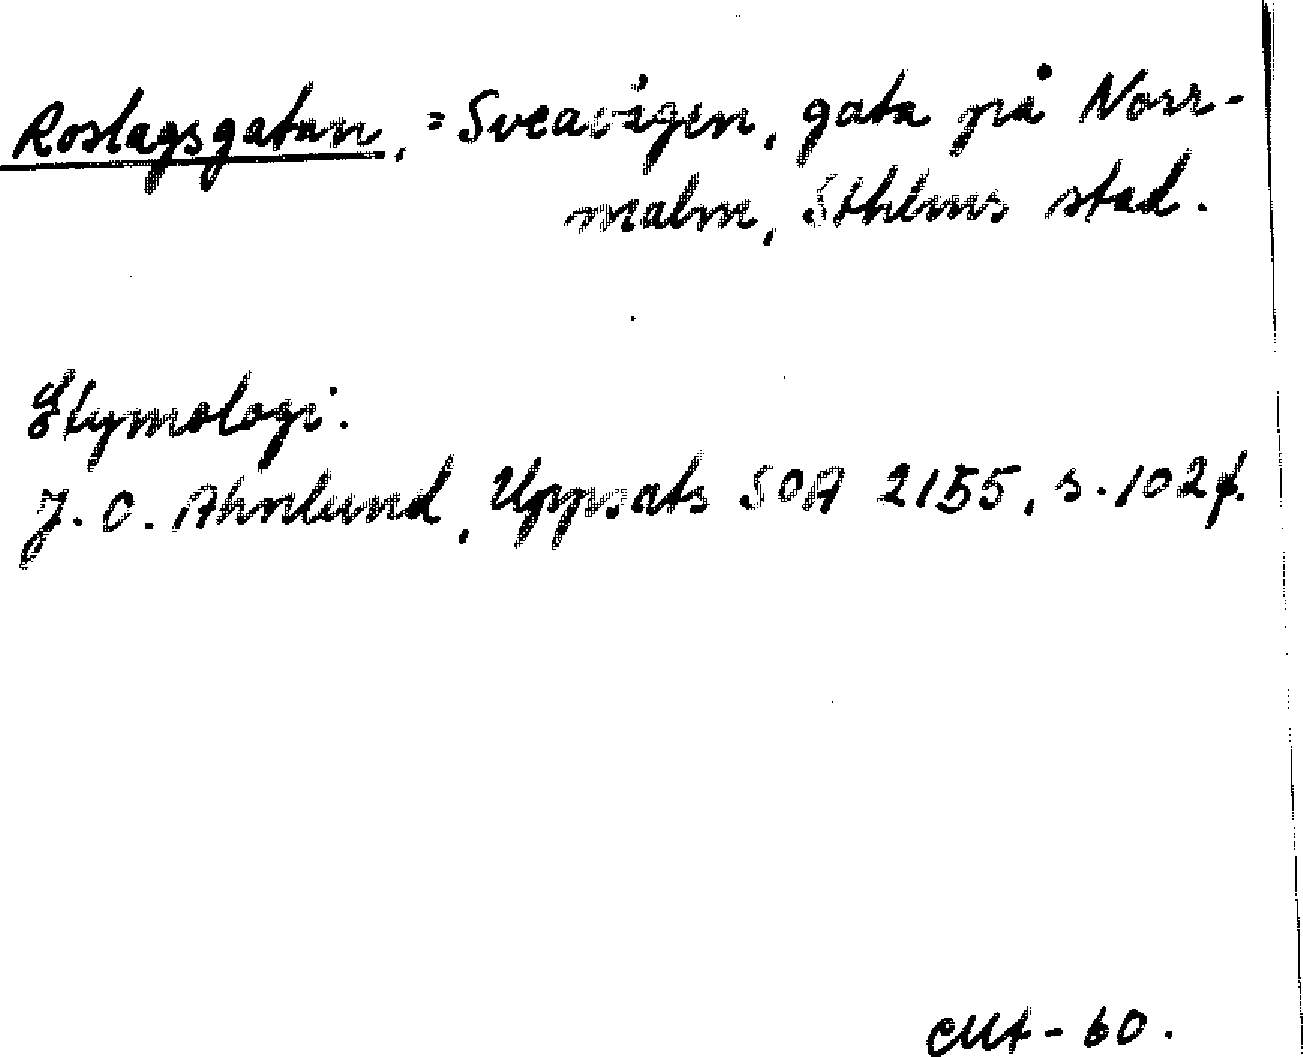 Roslagsgatan, = Sveavägen, gata på Norr-
malm, Sthlms stad.
Etymologi.
J. O. Ahnlund, Uppsats SOA 2155, s. 102f.
CMt - 60.